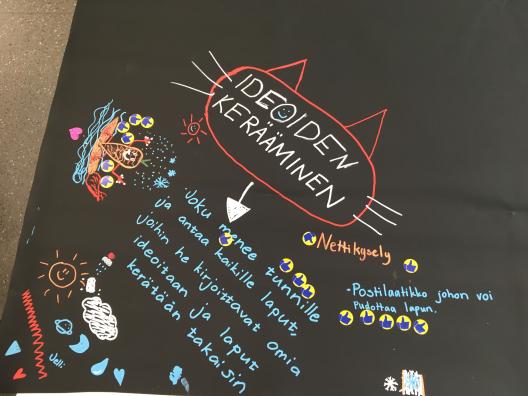 IDEOIDEN
KERÄÄMINEN
Joku menee tunnille
ja antaa kaikille laput,
johin he kirjoittavat omia
ideoitaan ja laput
kerätään takaisin
Nettikysely
-Postilaatikko johon voi
Pudottaa lapun.
Jelli